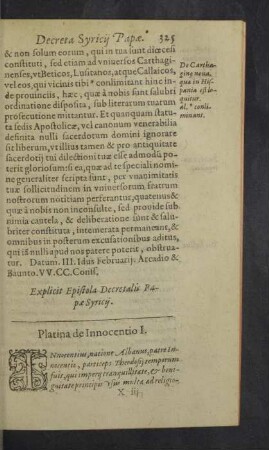 Decreta Syricij Papæ. 325
& non solum eorum, qui in tua sunt diœcesi
constituti, sed etiam ad vniuersos Carthagi-
nenses, vt Beticos, Lusitanos, atque Callaicos,
vel eos, qui vicinis tibi * conlimitant hinc in-
de prouincijs, hæc, quæ à nobis sunt salubri
ordinatione disposita, sub literarum tuarum
prosecutione mittantur. Et quanquam statu-
ta sedis Apostolicæ, vel canonum venerabilia
definita nulli sacerdotum domini ignorare
sit liberum, vtilius tamen & pro antiquitate
sacerdotij tui dilectioni tuæ esse admodũ po-
terit gloriosum: si ea, quæ ad te speciali nomi-
ne generaliter scripta sunt, per vnanimitatis
tuæ sollicitudinem in vniuersorum fratrum
nostrorum notitiam perferantur, quatenus &
quæ à nobis non inconsulte, sed prouide sub
nimia cautela, & deliberatione sunt & salu-
briter constituta, intemerata permaneant, &
omnibus in posterum excusationibus aditus,
qui iã nulli apud nos patere poterit, obstrua-
tur. Datum. III. Idus Februarij: Arcadio &
Bauntо. VV. CC. Cons.
De Cartha-
gine noua,
quæ in His-
pania est lo-
quitur.
al. * conli-
monant.
Explicit Epistola Decretalis Pa-
pæ Syricij.
Platina de Innocentio I.
INnocentius, natione, Albanus, patre In-
nocentio, particeps Theodosij temporum
fuit, qui imperij tranquillitate, & be-
guitate principis vsus multa ad religio-
X iij